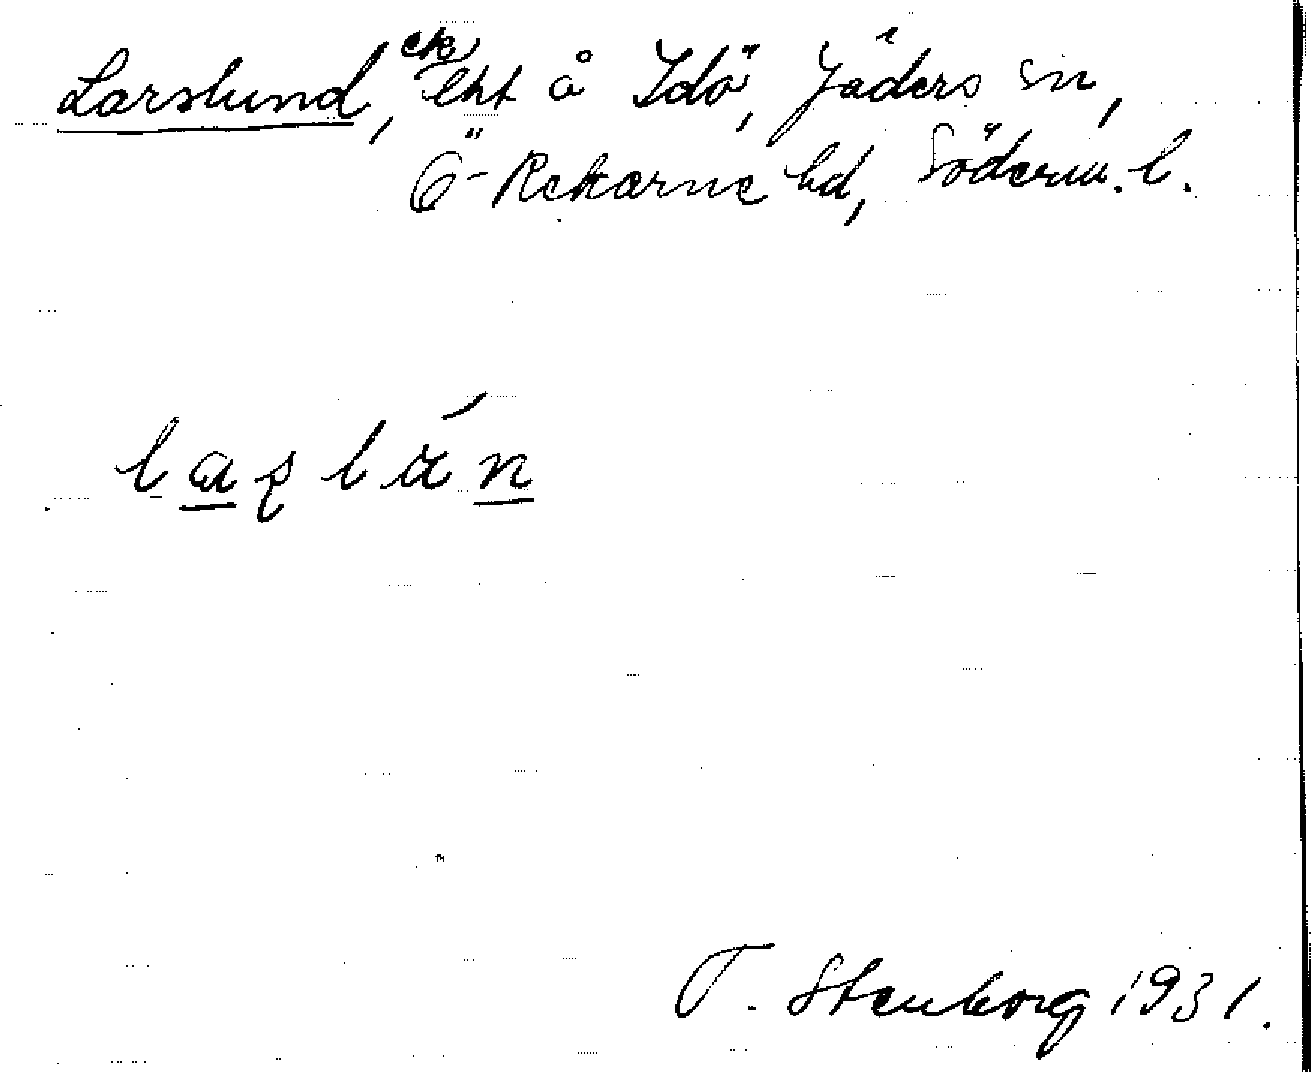 Larslund, lht å Idö, Jäders sn,
Ö-Rekarne hd, Söderm. l.
T. Stenborg 1931.